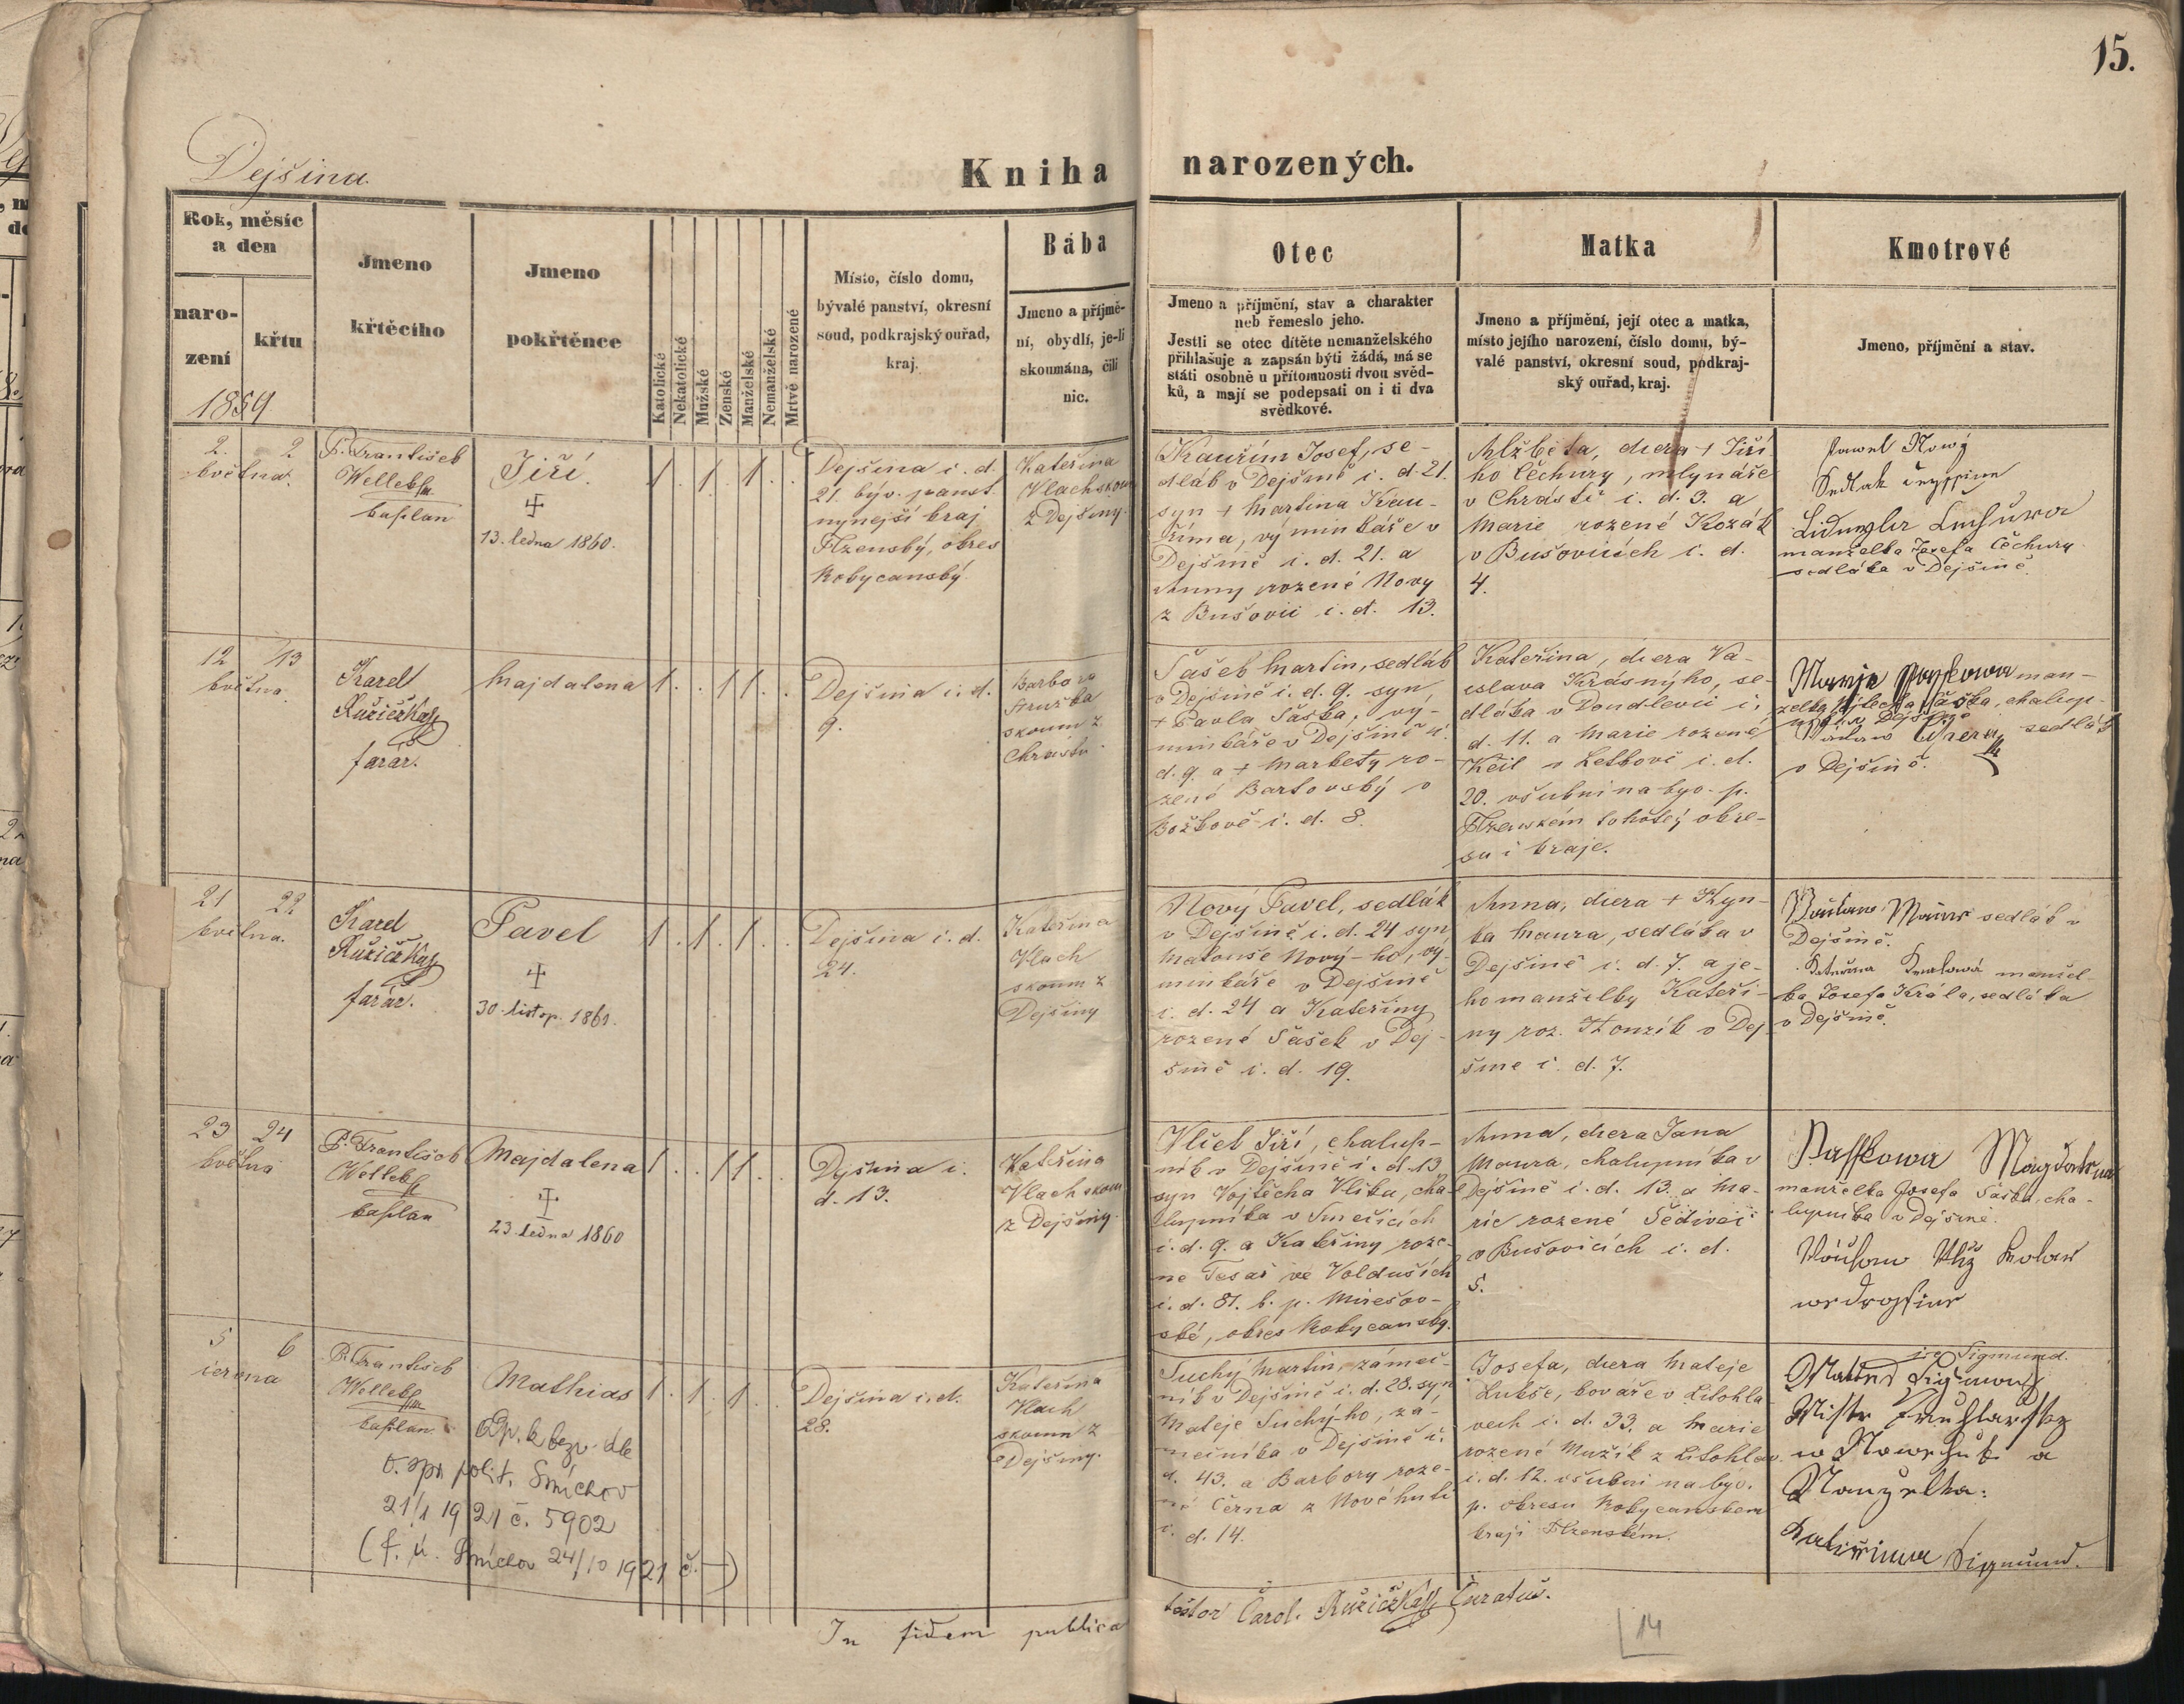 15.
Dejšina.
Kniha narozených.
Rok, měsíc
a den
naro-
zení
křtu
1859
Jmeno
křtěcího
Jmeno
pokřtěnce
Katolické
Nekatolické
Mužské
Ženské
Manželské
Nemanželské
Mrtvě narozené
Místo, číslo domu,
bývalé panství, okresní
soud, podkrajský ouřad,
kraj.
Bába
Jmeno a příjmě-
ní, obydlí, je-li
skoumána, čili
nic.
Otec
Jmeno a příjmění, stav a charakter
neb řemeslo jeho.
Jestli se otec dítěte nemanželského
přihlašuje a zapsán býti žádá, má se
státi osobně u přítomnosti dvou svěd-
ků, a mají se podepsati on i ti dva
svědkové.
Matka
Jmeno a příjmění, její otec a matka,
místo jejího narození, číslo domu, bý-
valé panství, okresní soud, podkraj-
ský ouřad, kraj.
Kmotrové
Jmeno, příjmění a stav.
2. 2
května.
P. František
Welleb
kaplan
Jiří
13. ledna 1860.
1 . 1 . 1 . .
Dejšina č. d.
21. býv. panst.
nynejší kraj
Plzenský, okres
Rokycanský
Kateřina
Vlach skoum
z Dejšiny.
Kauřím Josef, se-
dlák v Dejšině č. d. 21.
syn + Martina Kau-
říma, výminkáře v
Dejšině č. d. 21. a
Anny rozené Nový
z Bušovic č. d. 13.
Alžběta, dcera + Jiří
ho Čechury, mlynáře
v Chrástě č. d. 3. a
Marie rozené Kozák
v Bušovicích č. d.
4.
Pawel Nowý
Sedlak
manželka Josefa Čechury
sedláka v Dejšině.
12 13
května.
Karel
Růžička
farář.
Majdalena
1 . . 1 1 . .
Dejšina č. d.
9.
Barbora
Hruška
skoum z
Chrástu.
Šašek Martin, sedlák
v Dejšině č. d. 9. syn,
+ Pavla Šaška, vý-
minkáře v Dejšině č.
d. 9. a + Markety ro-
zené Bartovský v
Božkově č. d. 8.
Kateřina, dcera Vá-
clava Krásnýho, se-
dláka v Doudlevci č.
d. 11. a Marie rozené
Keil v Letkově č. d.
20. všubní na byv. p.
Plzenském tohotéž okre-
su i kraje.
Marie man-
želka Vojtěcha Šaška, chalup-
níka v Dejšině
sedlák
v Dejšině.
21 22
května.
Karel
Růžička
farář.
Pavel
30. listop. 1861.
1 . 1 . 1 . .
Dejšina č. d.
24.
Kateřina
Vlach
skoum z
Dejšiny
Nový Pavel, sedlák
v Dejšině č. d. 24 syn
Matouše Nový-ho, vý-
minkáře v Dejšině
č. d. 24 a Kateřiny
rozené Šašek v Dej-
šině č. d. 19.
Anna, dcera + Hyn-
ka Maura, sedláka v
Dejšině č. d. 7. a je-
ho manželky Kateři-
ny roz. Honzík v Dej-
šine č. d. 7.
sedlák v
Dejšině.
Kateřina Kralowá manžel-
ka Josefa Krále, sedláka
v Dejšině.
23 24
května
P. František
Welleb
kaplan
Majdalena
23. ledna 1860
1 . . 1 1 . .
Dyšina č.
d. 13.
Kateřina
Vlach skoum
z Dejšiny.
Vlček Jiří, chalup-
ník v Dejšině č. d. 13
syn Vojtěcha Vlčka, cha-
lupníka v Smečicích
č. d. 9. a Kateřiny roze-
né Tesař ve Volduších
č. d. 81. b. p. Mirešov-
ské, okres Rokycansky.
Anna, dcera Jana
Maura, chalupníka v
Dejšině č. d. 13. a Ma-
rie rozené Šedivei
v Bušovicích č. d.
5.
Magdalena
manželka Josefa Šaška, cha-
lupníka v Dejšině.
5 6
června
P. František
Welleb
kaplan.
Mathias
Odp. k bezv. dle
o. spr. polit. Smíchov
21/1 1921 č. 5902
(f. ú. Smíchov 24/10 1921 č. —)
1 . 1 . 1 . .
Dejšina č. d.
28.
Kateřina
Vlach
skoum z
Dejšiny.
Suchý Martin, zámeč-
ník v Dejšině č. d. 28. syn
Mateje Suchý-ho, zá-
mečníka v Dejšině č.
d. 43. a Barbory roze-
né Černa z Nové huti
č. d. 14.
Josefa, dcera Mateje
Lukše, kováře v Litohla-
vech č. d. 33. a Marie
rozené Mužík z Litohlav.
č. d. 12. všubní na býv.
p. okresu Rokycanskem
kraji Plzenském.
Sigmund.
Mistr
a
Manzelka:
Kateřina Sigmund.
In fidem publica
testor Carol. Růžička, Curatus.
14